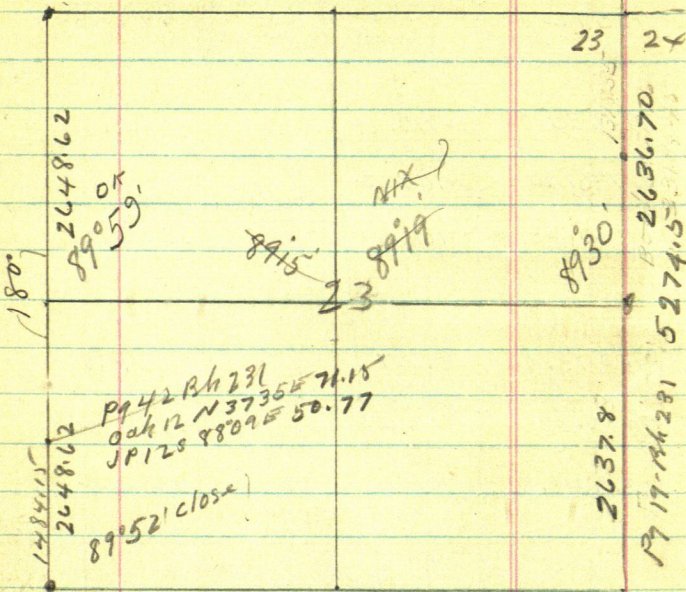 23 24
2648.62
OK
89°59'
180°
8915'
NIX
89°19'
89°30'
2636.70
5274.5
23
Pg 42 Bk 231
Oak 12 N3735E 71.15
JP12S 8809E 50.77
2648.62
1484.15
89°52' close
2637.8
Pg 19-Bk 231